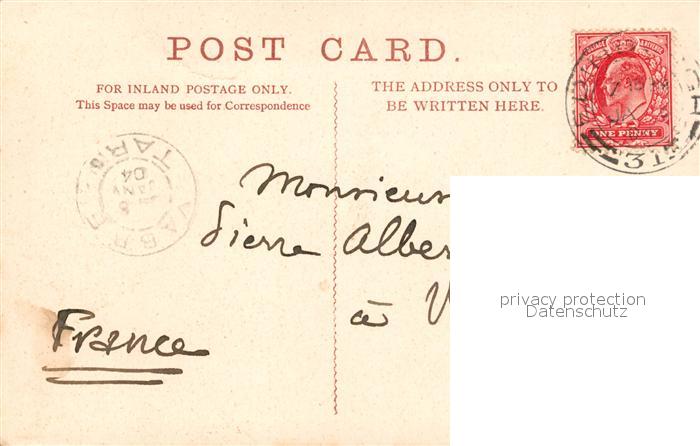 POST CARD.
FOR INLAND POSTAGE ONLY.
This Space may be used for Correspondence
THE ADDRESS ONLY TO
BE WRITTEN HERE.
POSTAGE & REVENUE
ONE PENNY
VABRE
TARN
JANV
04
Monsieur
Pierre Alber
à V
France
privacy protection
Datenschutz